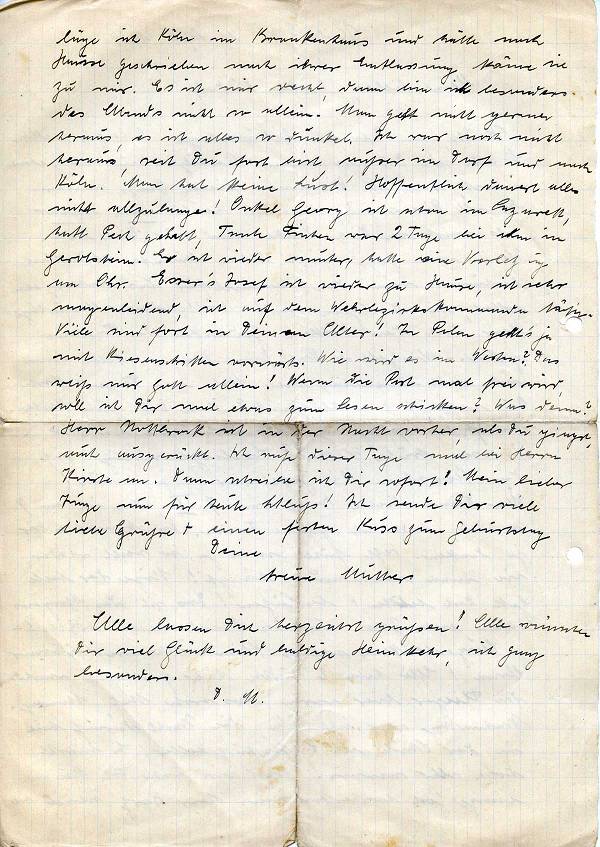 liege ist Köln im Krankenhaus und hätte nach
Hause geschrieben nach ihrer Entlassung käme sie
zu mir. Es ist mir recht, dann bin ich besonders
des Abends nicht so allein. Man geht nicht gerne
heraus, es ist alles so dunkel. Ich war noch nicht
heraus, seit Du fort bist außer im Dorf und nach
Köln. Man hat keine Lust! Hoffentlich dauert alles
nicht allzulange! Onkel Georg ist schon im Lazarett,
hatt Pech gehabt, Tante war 2 Tage bei ihm in
Gerolstein. Er ist wieder munter, hatte eine Verletzung
am Ohr. Esser's Josef ist wieder zu Hause, ist sehr
magenleidend, ist auf dem Wehrbezirkskommando tätig.
Viele sind fort in Deinem Alter! In Polen geht's ja
mit Riesenschritten vorwärts. Wie wird es im Westen? Das
weiß nur Gott allein! Wenn die Post mal frei wird,
soll ich Dir mal etwas zum lesen schicken? Was denn?
Herr ist in der Nacht vorher, als Du gingst,
auch ausgerückt. Ich rufe dieser Tage mal bei Herrn
an. Dann schreibe ich Dir sofort! Mein lieber
Junge nun für heute Schluß! Ich sende Dir viele
liebe Grüße + einen festen Kuss zum Geburtstag
Deine
treue Mutter
Alle lassen Dich herzlichst grüßen! Alle wünschen
Dir viel Glück und baldige Heimkehr, ich ganz
besonders.
D. M.